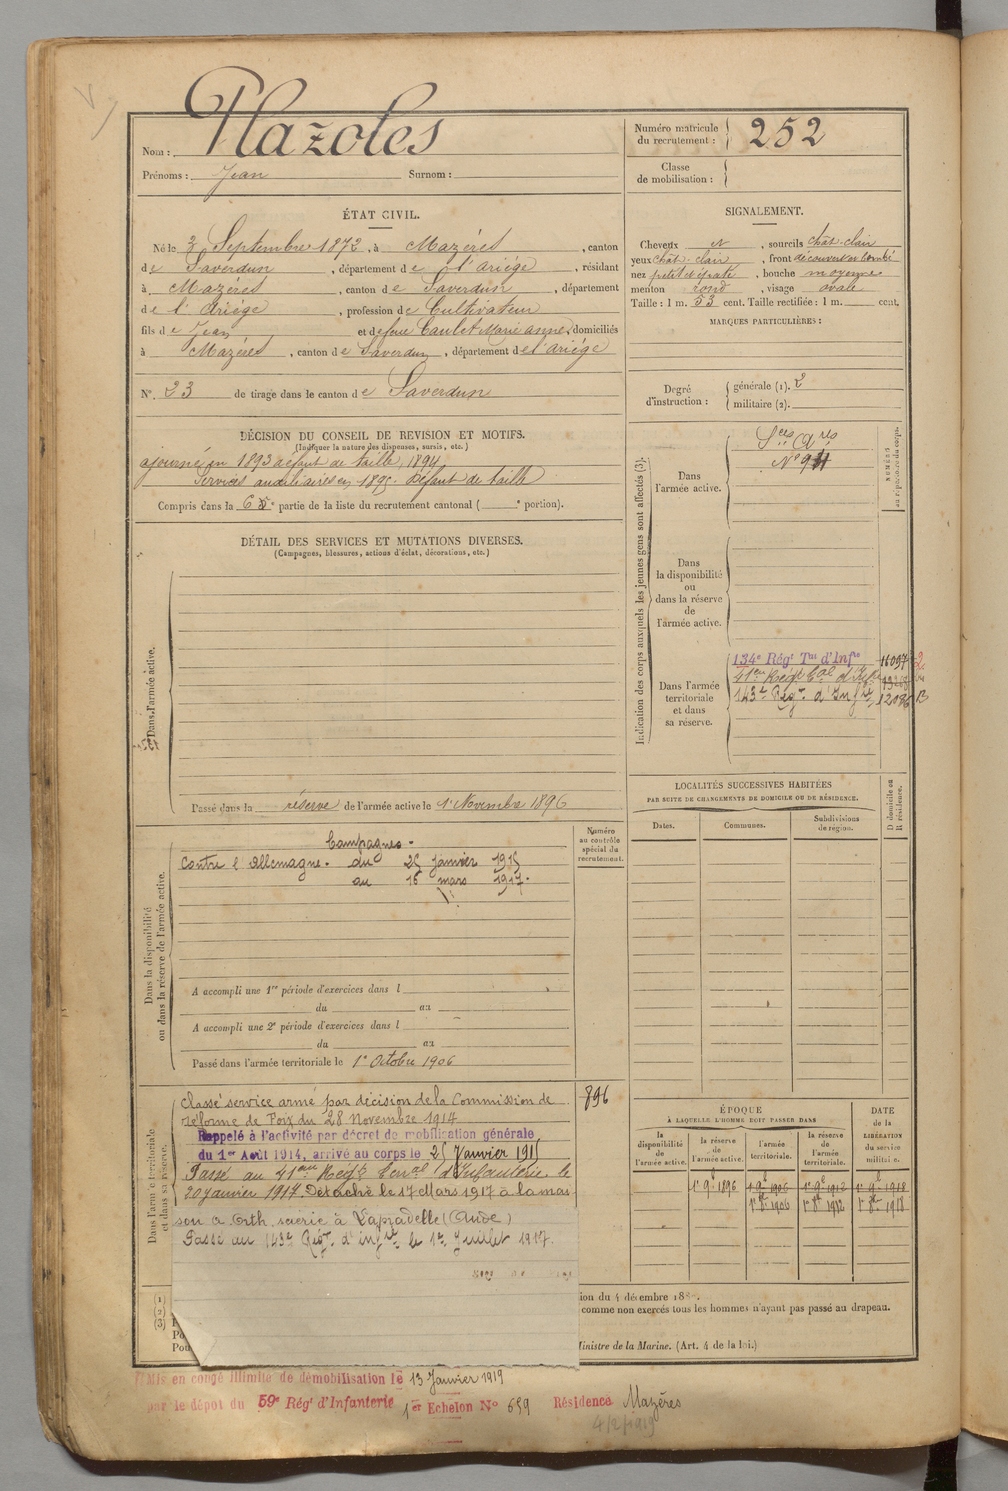 Nom : Mazoles
Prénoms : Jean Surnom :
Numéro matricule du recrutement : 252
Classe de mobilisation :
ÉTAT CIVIL.
Né le 3 Septembre 1872, à Mazères, canton
de Saverdun, département de l'Ariège, résidant
à Mazères, canton de Saverdun, département
de l'Ariège, profession de Cultivateur
fils de Jean et de feue Caulet Marie anne, domiciliés
à Mazères, canton de Saverdun, département de l'ariège
N°. 23 de tirage dans le canton de Saverdun
SIGNALEMENT.
Cheveux N, sourcils chât-clair
yeux chât-clair, front découvert
nez petit, bouche moyenne
menton rond, visage ovale
Taille : 1 m. 53 cent. Taille rectifiée : 1 m. cent.
MARQUES PARTICULIÈRES :
Degré d'instruction :
générale (1). 2
militaire (2).
DÉCISION DU CONSEIL DE REVISION ET MOTIFS.
(Indiquer la nature des dispenses, sursis, etc.)
ajourné en 1893 défaut de taille, 1894
Services auxiliaires en 1895. Défaut de taille
Compris dans la 6e partie de la liste du recrutement cantonal ( e portion).
DÉTAIL DES SERVICES ET MUTATIONS DIVERSES.
(Campagnes, blessures, actions d'éclat, décorations, etc.)
Dans l'armée active.
Passé dans la réserve de l'armée active le 1er Novembre 1896
Indication des corps auxquels les jeunes gens sont affectés (3).
NUMÉRO
au répertoire du corps.
Dans l'armée active.
Sces Ares
Dans la disponibilité ou dans la réserve de l'armée active.
Dans l'armée territoriale et dans sa réserve.
134e Régt Tal d'Infie 16097
41eme Régt d'Infie
143e Régt d'Infie 12086
LOCALITÉS SUCCESSIVES HABITÉES
PAR SUITE DE CHANGEMENTS DE DOMICILE OU DE RÉSIDENCE.
D domicile ou R résidence.
Dates. Communes. Subdivisions de région.
Dans la disponibilité ou dans la réserve de l'armée active.
Numéro au contrôle spécial du recrutement.
Campagnes -
Contre l'Allemagne. du 25 janvier 1915
au 16 mars 1917.
A accompli une 1re période d'exercices dans l
du au
A accompli une 2e période d'exercices dans l
du au
Passé dans l'armée territoriale le 1er Octobre 1906
Dans l'armée territoriale et dans sa réserve.
896
Classé service armé par décision de la Commission de
réforme de Foix du 28 Novembre 1914
Rappelé à l'activité par décret de mobilisation générale
du 1er Août 1914, arrivé au corps le 25 Janvier 1915
Passé au 41eme Régt d'Infanterie le
20 janvier 1917. Détaché le 17 Mars 1917 à la mai
son Orth, scierie à Lapradelle (Aude)
Passé au 143e Régt d'infie le 1er Juillet 1917.
ÉPOQUE
À LAQUELLE L'HOMME DOIT PASSER DANS
la disponibilité de l'armée active.
la réserve de l'armée active.
l'armée territoriale.
la réserve de l'armée territoriale.
DATE de la LIBÉRATION du service militaire.
1er 9e 1896 1er 9e 1906 1er 9e 1912 1er 9e 1918
1er 8e 1906 1er 8e 1912 1er 8e 1918
(1)
(2)
(3)
ion du 4 décembre
comme non exercés tous les hommes n'ayant pas passé au drapeau.
Ministre de la Marine. (Art. 4 de la loi.)
Mis en congé illimité de démobilisation le 13 Janvier 1919
par le dépot du 59e Régt d'Infanterie 1er Echelon N° 659 Résidence Mazères
4/2/1919